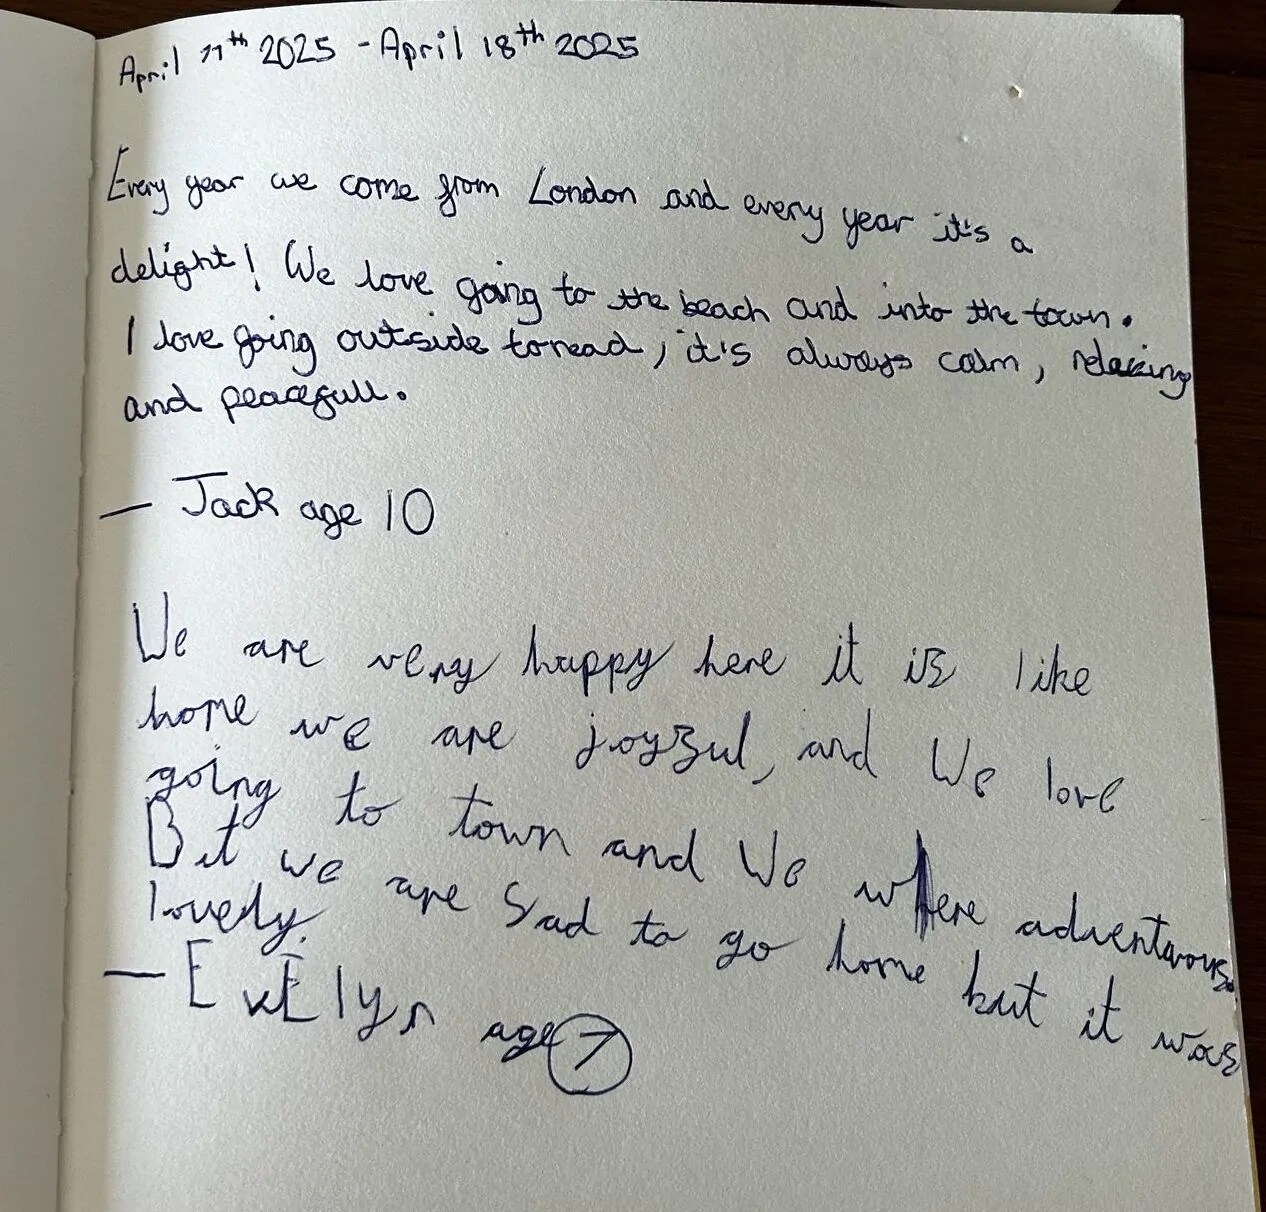 April 11th 2025 - April 18th 2025
Every year we come from London and every year it's a
delight! We love going to the beach and into the town.
I love going outside to read; it's always calm, relaxing
and peacefull.
— Jack age 10
We are very happy here it is like
home we are joyful, and We love
going to town and We where adventurous.
But we are Sad to go home but it was
lovely.
— EvElyn age 7